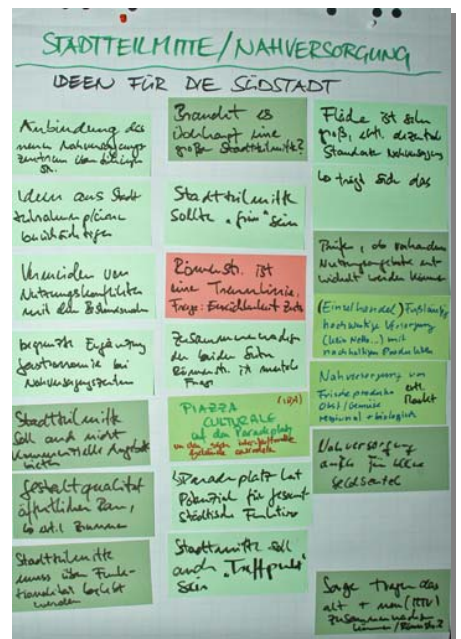 STADTTEILMITTE/NAHVERSORGUNG
IDEEN FÜR DIE SÜDSTADT
Anbindung des
neuen Nahversorgungs
zentrum über
Str.
Ideen aus Stadt
berücksichtigen
Vermeiden von
Nutzungskonflikten
mit den
begrenzte Ergänzung
Gastronomie bei
Nahversorgungszentrum
Stadtteilmitte
soll auch nicht
kommerzielle Angebote
bieten
Gestaltqualität
öffentlicher Raum,
Brunnen
Stadtteilmitte
muss über Funk-
tionalität belebt
werden
Braucht es
überhaupt eine
große Stadtteilmitte?
Stadtteilmitte
sollte "grün" sein
Römerstr. ist
eine Trennlinie,
Frage: Erreichbarkeit
Zusammenwachsen
der beiden Seiten
Römerstr. ist
Frage
PIAZZA (IBA)
CULTURALE
auf dem Paradeplatz
Paradeplatz hat
Potenzial für gesamt
städtische Funktion
Stadtmitte soll
auch "Treffpunkt"
sein
Fläche ist sehr
groß, evtl. dezentrale
Standorte Nahversorgung
trägt sich das
Prüfen, ob vorhandene
Nutzungsangebote ent
wickelt werden können
(Einzelhandel) Fußläufig
hochwertige Versorgung
(kein Netto...) mit
nachhaltigen Produkten
Nahversorgung von
Frischeprodukten evtl.
Obst/Gemüse Markt
regional + biologisch
Nahversorgung
auch für kleine
Geldbeutel
Sorge tragen das
alt + neu (RTV)
zusammenwachsen
können /Römerstr.?